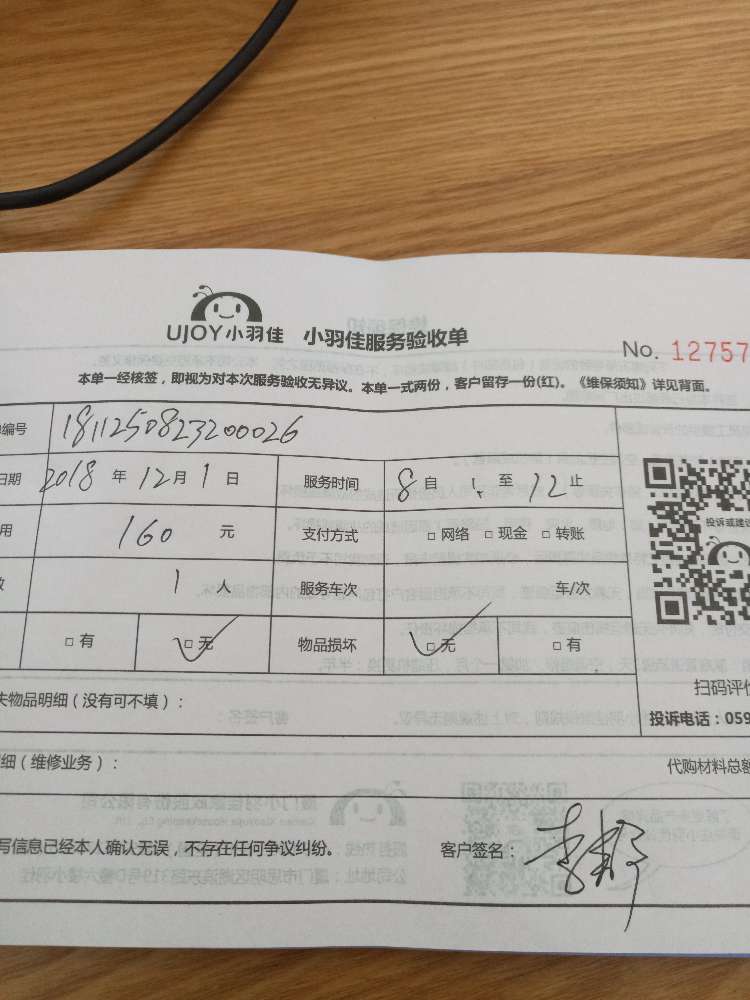 UJOY小羽佳 小羽佳服务验收单
No. 12757
本单一经核签，即视为对本次服务验收无异议。本单一式两份，客户留存一份(红)。《维保须知》详见背面。
编号 1811250823200026
日期 2018 年 12 月 1 日 服务时间 8 自 1 至 12 止
用 160 元 支付方式 □ 网络 □ 现金 □ 转账
投诉或建议
数 1 人 服务车次 车/次
□ 有 □ 无 物品损坏 □ 无 □ 有
扫码评价
失物品明细（没有可不填）：
投诉电话：059
细（维修业务）：
代购材料总额
写信息已经本人确认无误，不存在任何争议纠纷。 客户签名：